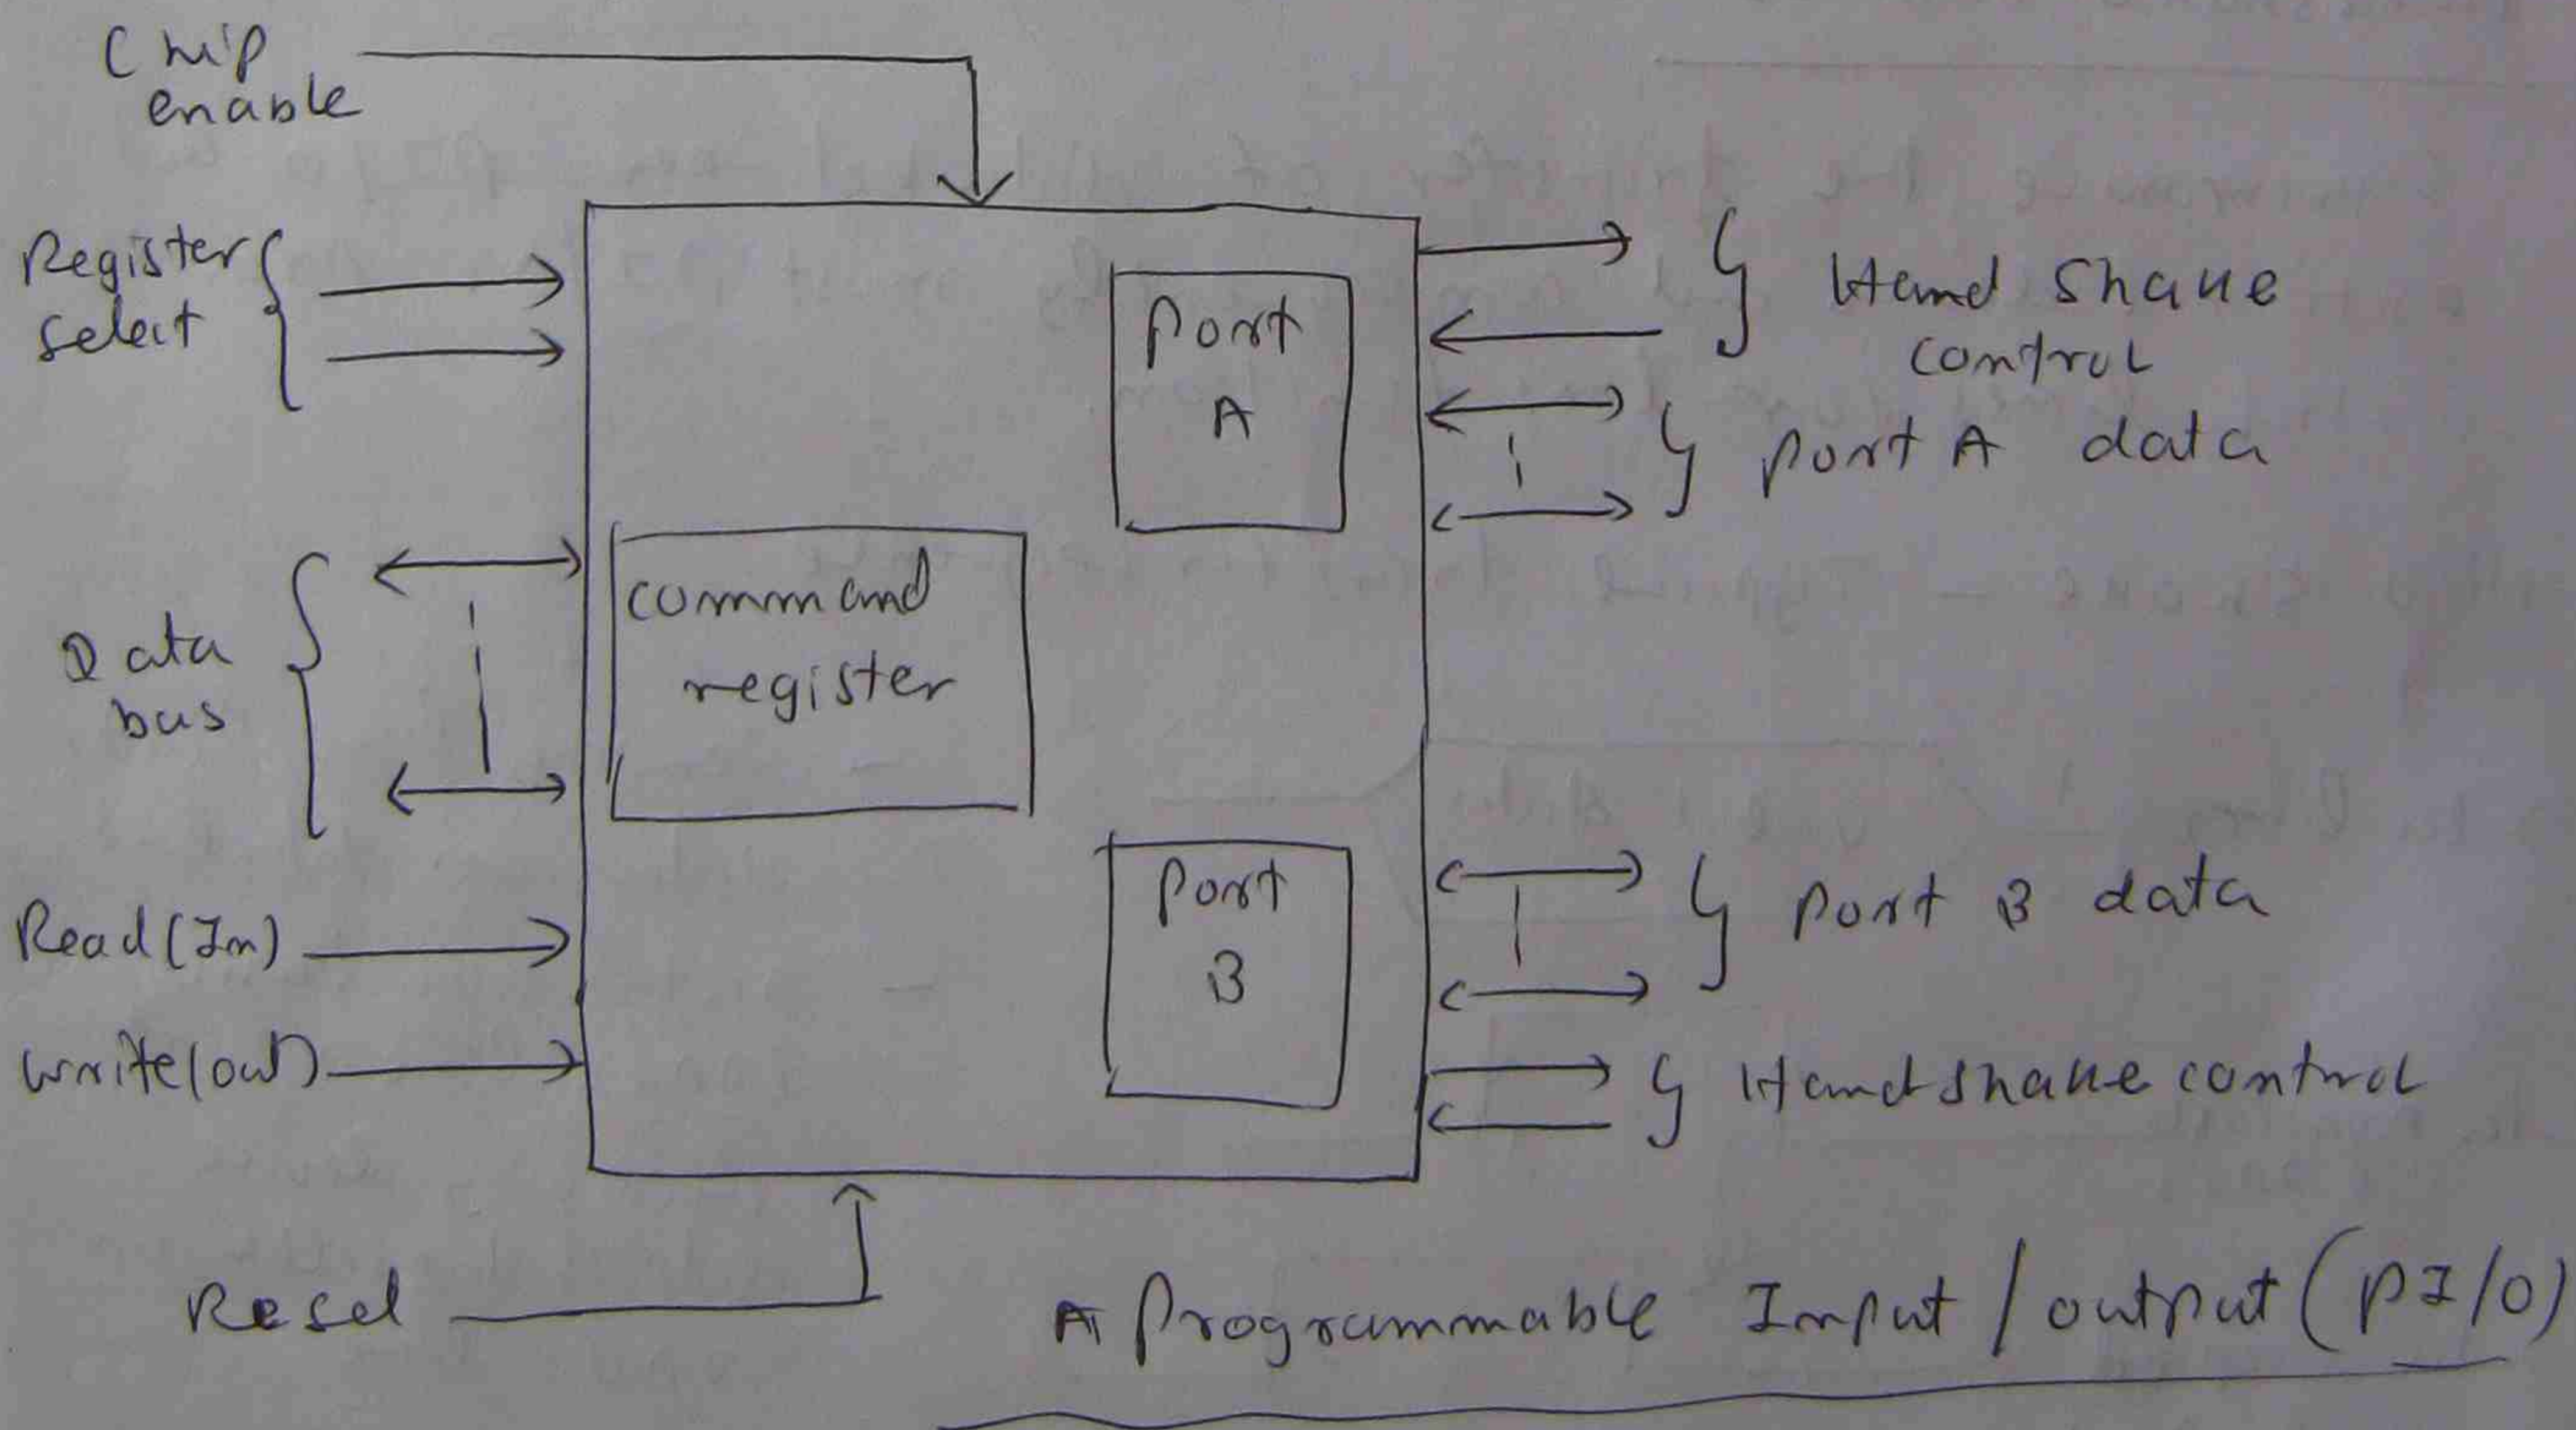 Chip
enable
Register
select
Data
bus
Read(In)
write(out)
Reset
Port
A
command
register
Port
B
Hand Shake
control
Port A data
Port B data
Handshake control
A Programmable Input/output (PI/O)